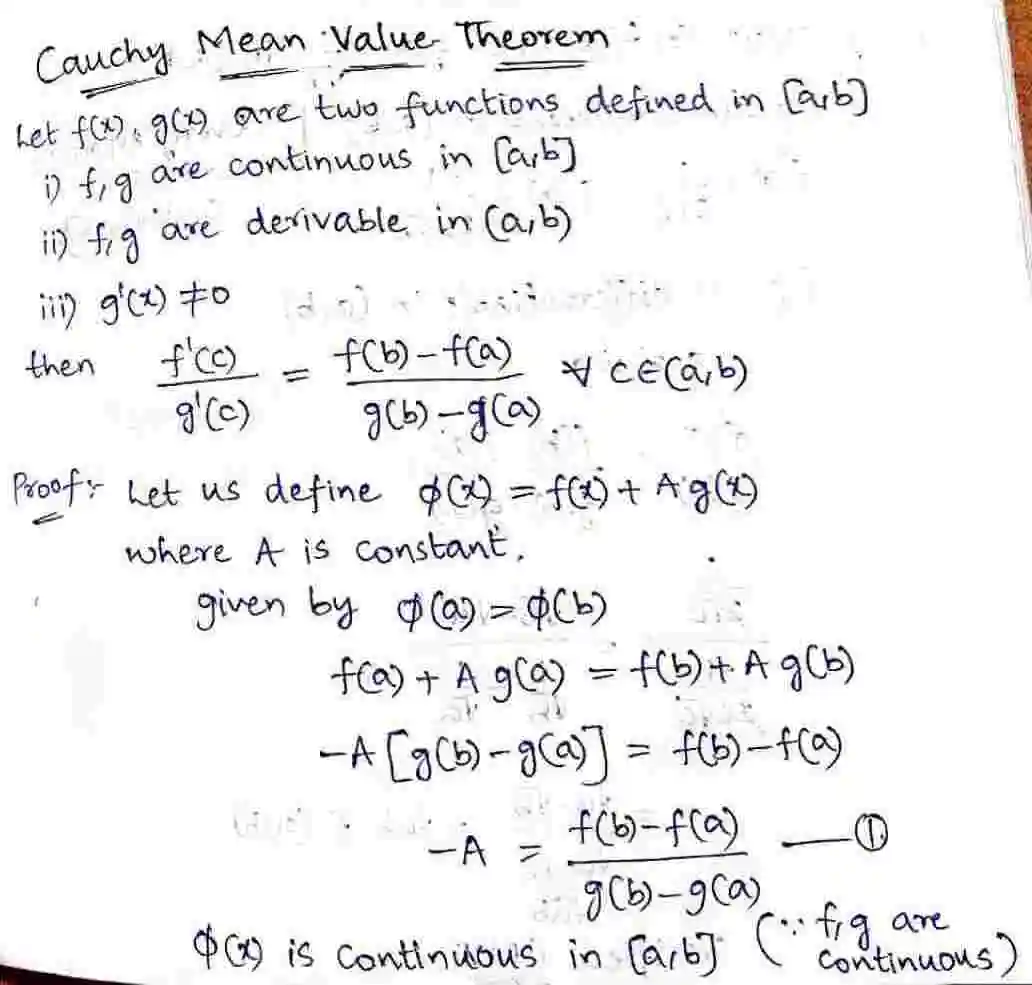 Cauchy Mean Value Theorem :
Let f(x), g(x) are two functions defined in [a,b]
i) f,g are continuous in [a,b]
ii) f,g are derivable in (a,b)
iii) g'(x) ≠ 0
then f'(c)/g'(c) = f(b)-f(a)/g(b)-g(a) ∀ c∈(a,b)
Proof:- Let us define φ(x) = f(x) + A g(x)
where A is constant.
given by φ(a) = φ(b)
f(a) + A g(a) = f(b) + A g(b)
-A [g(b)-g(a)] = f(b)-f(a)
-A = f(b)-f(a)/g(b)-g(a) —①
φ(x) is continuous in [a,b] (∵ f,g are
continuous)